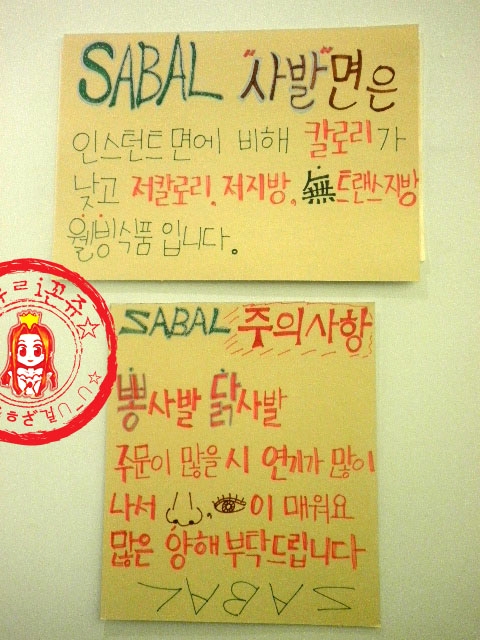 SABAL "사발"면은
인스턴트면에 비해 칼로리가
낮고 저칼로리, 저지방, 無트랜스지방
웰빙식품입니다.
SABAL 주의사항
뽕사발 닭사발
주문이 많을시 연기가 많이
나서 , 이 매워요
많은 양해부탁드립니다
SABAL